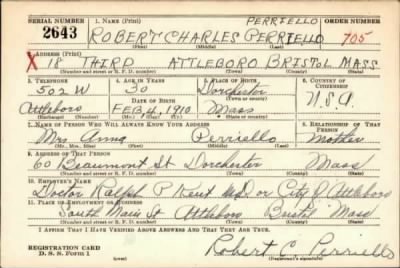 SERIAL NUMBER 1. NAME (Print) PERRIELLO ORDER NUMBER
2643 ROBERT CHARLES PERRIELLO 705
(First) (Middle) (Last)
2. ADDRESS (Print)
X 18 THIRD ATTLEBORO BRISTOL MASS.
(Number and street or R. F. D. number) (Town) (County) (State)
3. TELEPHONE 4. AGE IN YEARS 5. PLACE OF BIRTH 6. COUNTRY OF CITIZENSHIP
502 W 30 Dorchester
(Town or county)
DATE OF BIRTH U.S.A.
Attleboro FEB 4, 1910 Mass
(Exchange) (Number) (Mo.) (Day) (Yr.) (State or country)
7. NAME OF PERSON WHO WILL ALWAYS KNOW YOUR ADDRESS 8. RELATIONSHIP OF THAT PERSON
Mrs. Anna Perriello Mother
(Mr., Mrs., Miss) (First) (Middle) (Last)
9. ADDRESS OF THAT PERSON
60 Beaumont St Dorchester Mass
(Number and street or R. F. D. number) (Town) (County) (State)
10. EMPLOYER'S NAME
Doctor Ralph P Kent M.D. or City of Attleboro
11. PLACE OF EMPLOYMENT OR BUSINESS
South Main St Attleboro Bristol Mass
(Number and street or R. F. D. number) (Town) (County) (State)
I AFFIRM THAT I HAVE VERIFIED ABOVE ANSWERS AND THAT THEY ARE TRUE.
REGISTRATION CARD
D. S. S. Form 1 Robert C. Perriello
(Registrant's signature)